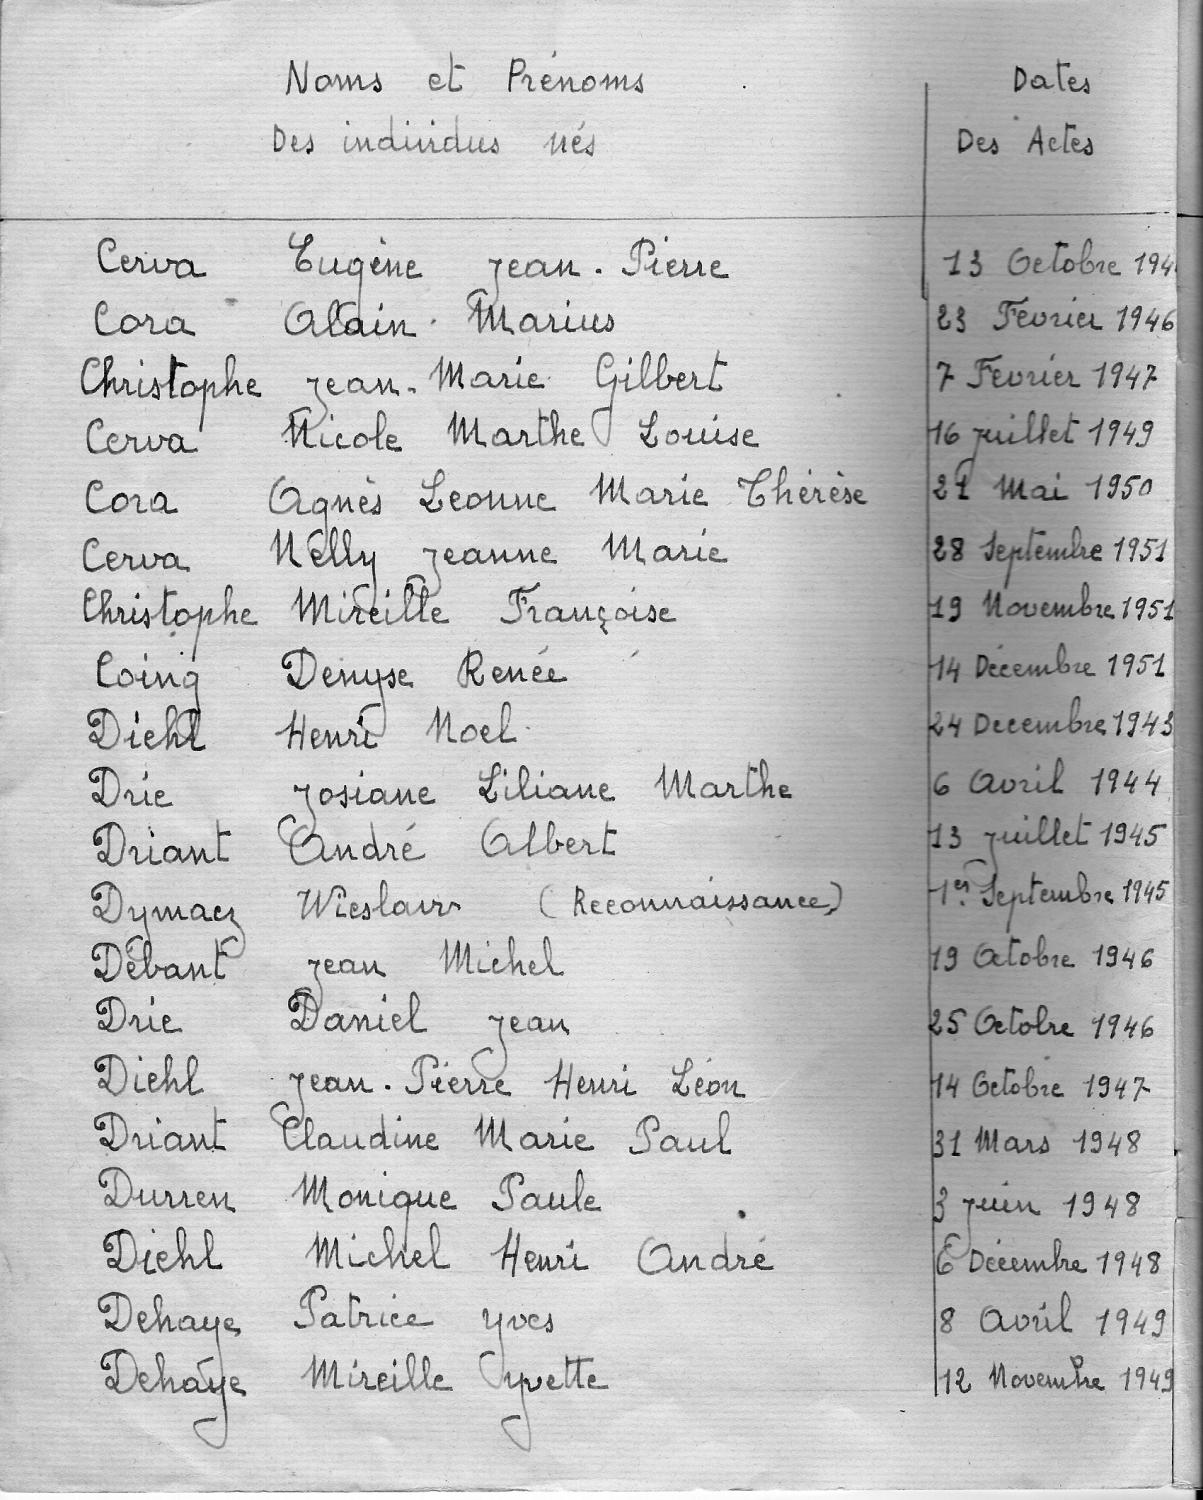 Noms et Prénoms Dates
Des individus nés Des Actes
Cerva Eugène Jean-Pierre 13 Octobre 194
Cora Alain Marius 23 Février 1946
Christophe Jean-Marie Gilbert 7 Février 1947
Cerva Nicole Marthe Louise 16 juillet 1949
Cora Agnès Léonne Marie Thérèse 21 Mai 1950
Cerva Nelly Jeanne Marie 28 Septembre 1951
Christophe Mireille Françoise 19 Novembre 1951
Coing Denyse Renée 14 Décembre 1951
Diehl Henri Noel 24 Decembre 1943
Drie Josiane Liliane Marthe 6 Avril 1944
Driant André Albert 13 juillet 1945
Dymacz Wieslaw (Reconnaissance) 1er Septembre 1945
Débant Jean Michel 19 Octobre 1946
Drie Daniel Jean 25 Octobre 1946
Diehl Jean-Pierre Henri Léon 14 Octobre 1947
Driant Claudine Marie Paul 31 Mars 1948
Durren Monique Paule 3 juin 1948
Diehl Michel Henri André 6 Décembre 1948
Dehaye Patrice Yves 8 Avril 1949
Dehaye Mireille Yvette 12 Novembre 1949